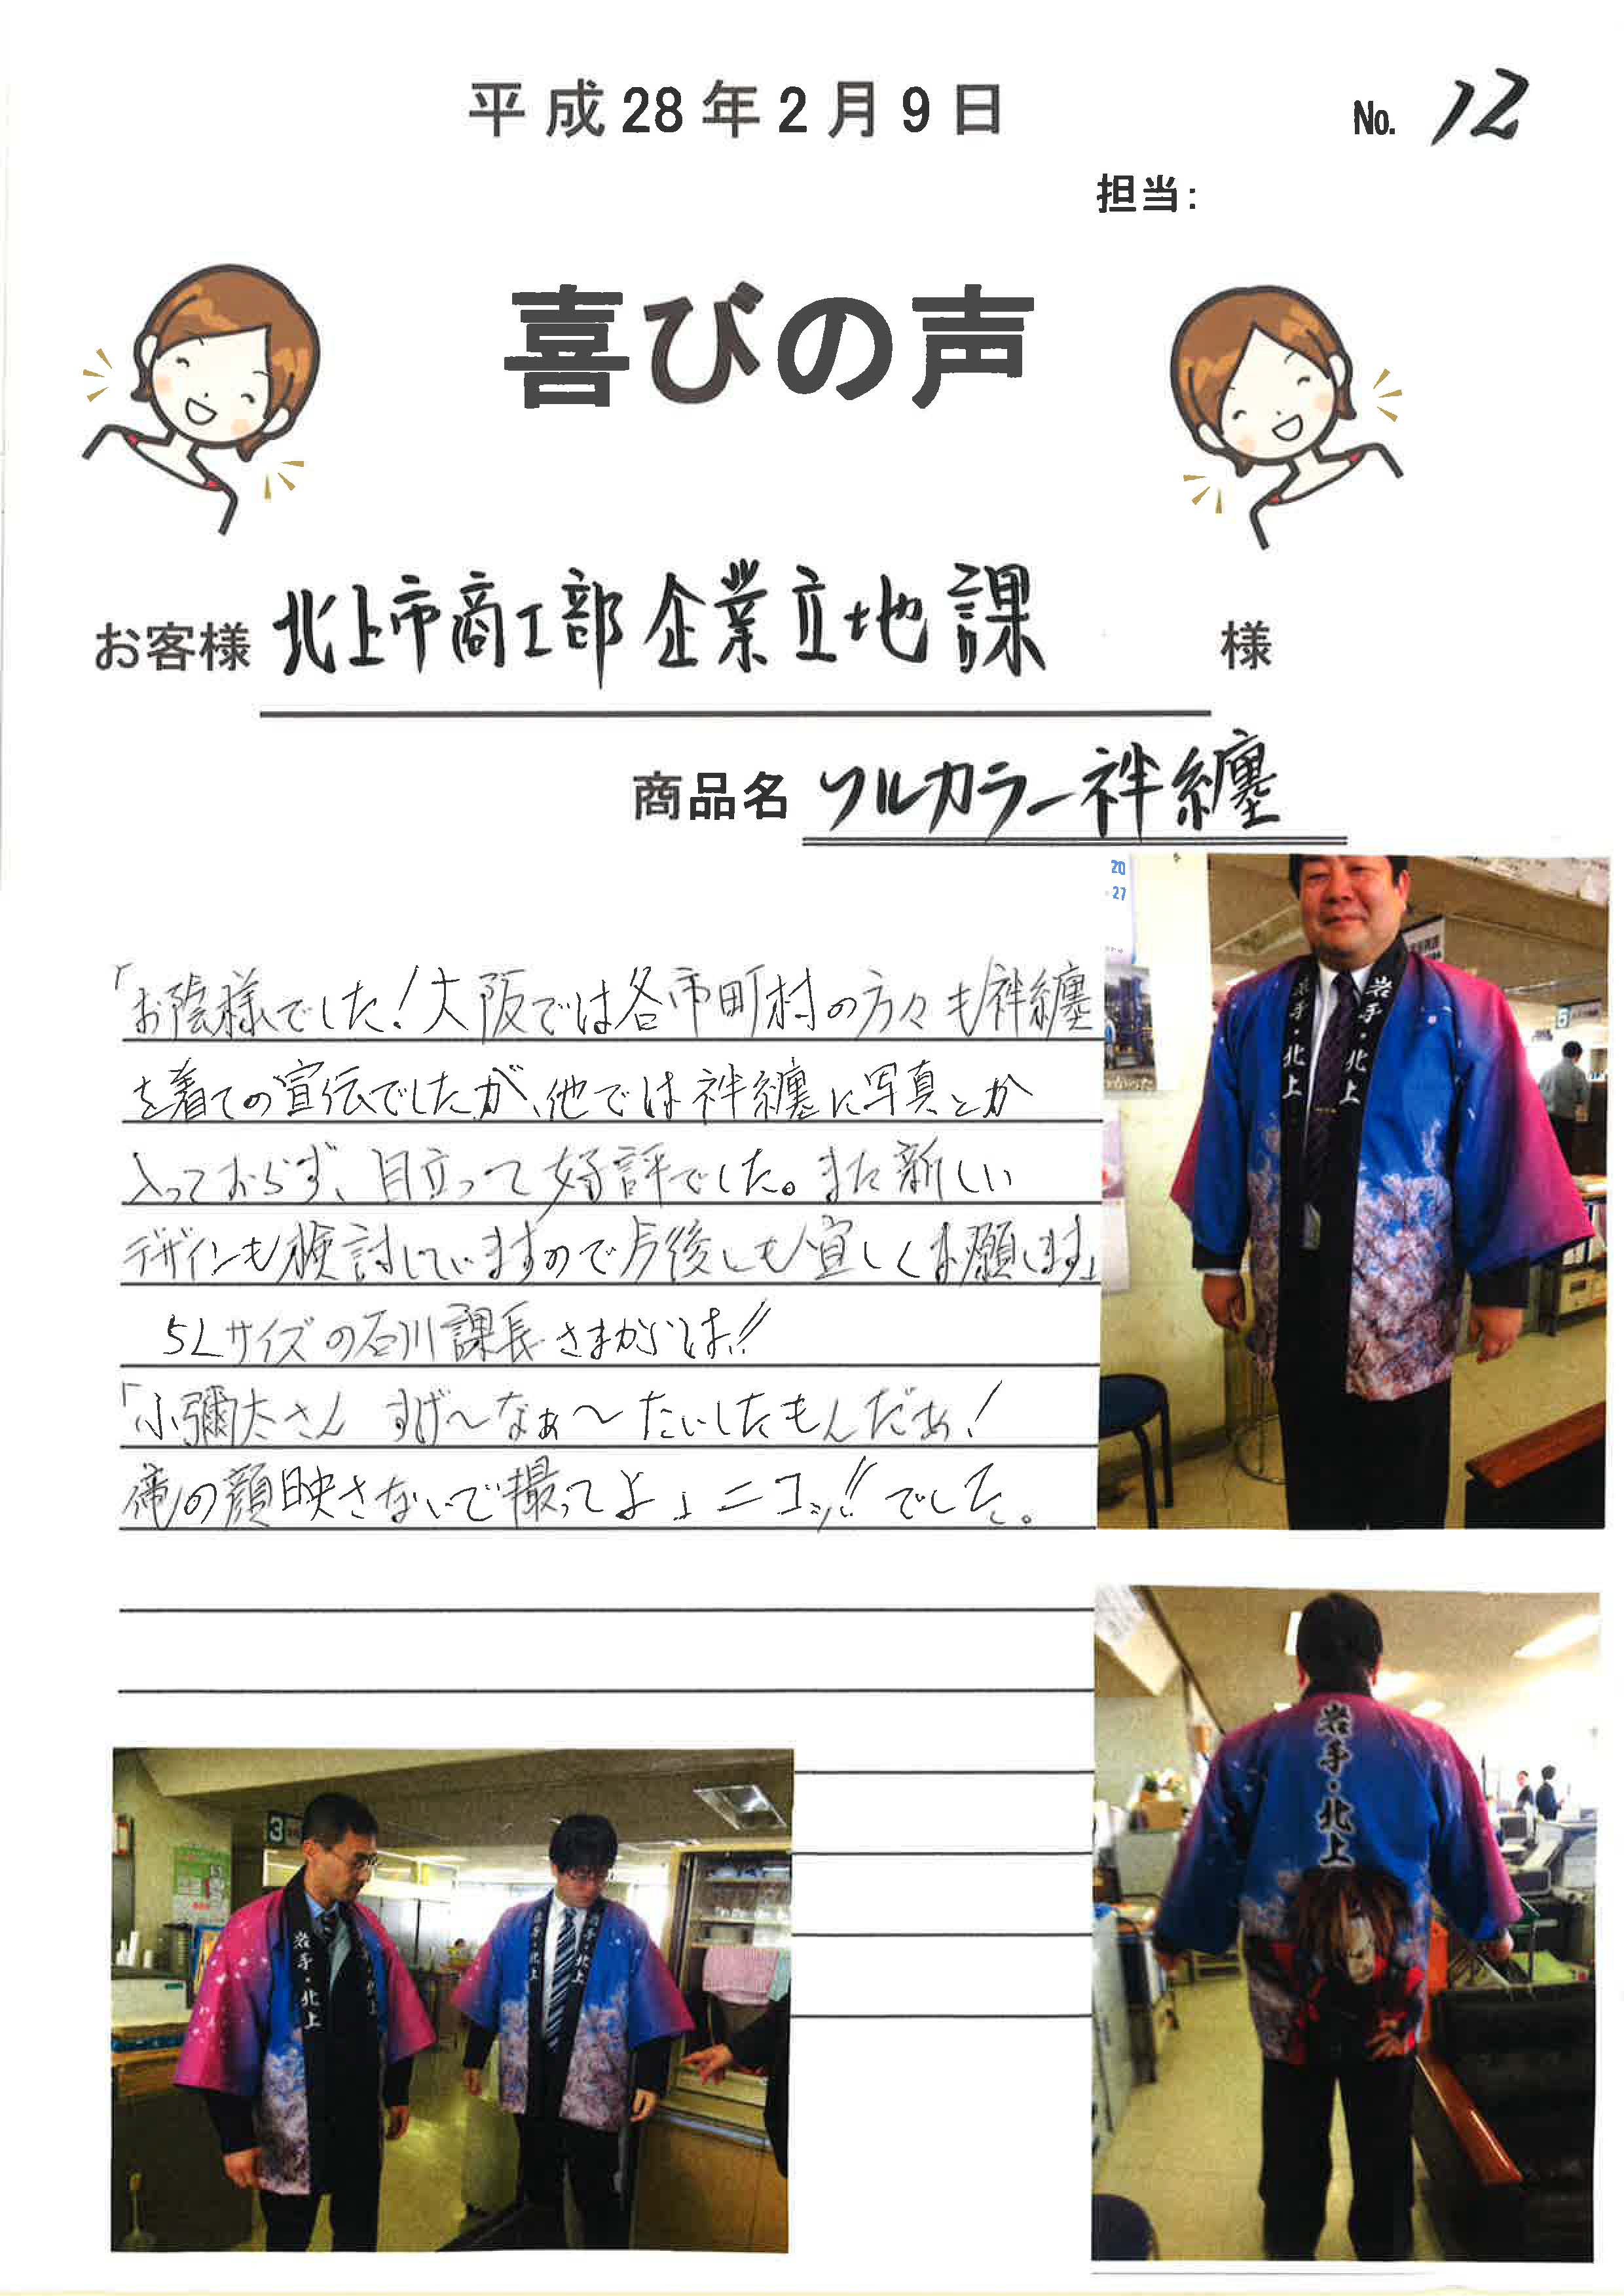 平成28年2月9日
No. 12
担当:
喜びの声
お客様 北上市商工部 企業立地課 様
商品名 フルカラー袢纏
「お陰様でした!大阪では各市町村の方々も袢纏
を着ての宣伝でしたが、他では袢纏に写真とか
入っておらず、目立って好評でした。また新しい
デザインも検討していますので今後とも宜しくお願します」
5Lサイズの石川課長さまからは!!
「小彌太さん すげ〜なぁ〜たいしたもんだぁ!
俺の顔映さないで撮ってよ」ニコッ!!でした。
20
27
岩手・北上
岩手・北上
5
岩手・北上
3
岩手・北上
岩手・北上
岩手・北上